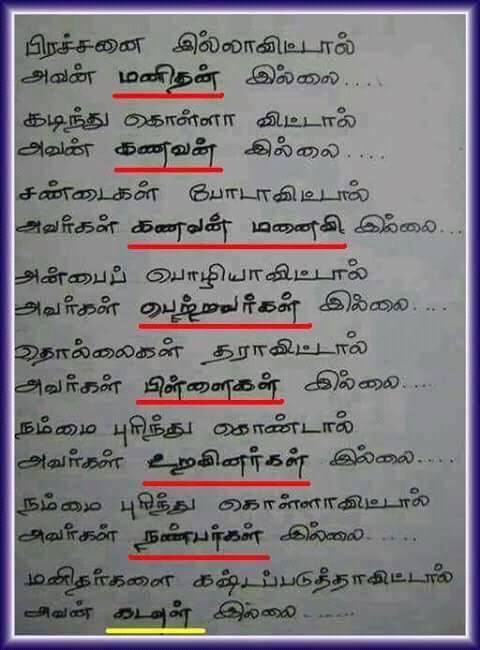 பிரச்சனை இல்லாவிட்டால்
அவன் மனிதன் இல்லை....
கடிந்து கொள்ளா விட்டால்
அவன் கணவன் இல்லை....
சண்டைகள் போடாவிட்டால்
அவர்கள் கணவன் மனைவி இல்லை...
அன்பைப் பொழியாவிட்டால்
அவர்கள் பெற்றவர்கள் இல்லை....
தொல்லைகள் தராவிட்டால்
அவர்கள் பிள்ளைகள் இல்லை.....
நம்மை புரிந்து கொண்டால்
அவர்கள் உறவினர்கள் இல்லை.....
நம்மை புரிந்து கொள்ளாவிட்டால்
அவர்கள் நண்பர்கள் இல்லை......
மனிதர்களை கஷ்டப்படுத்தாவிட்டால்
அவன் கடவுள் இல்லை.......